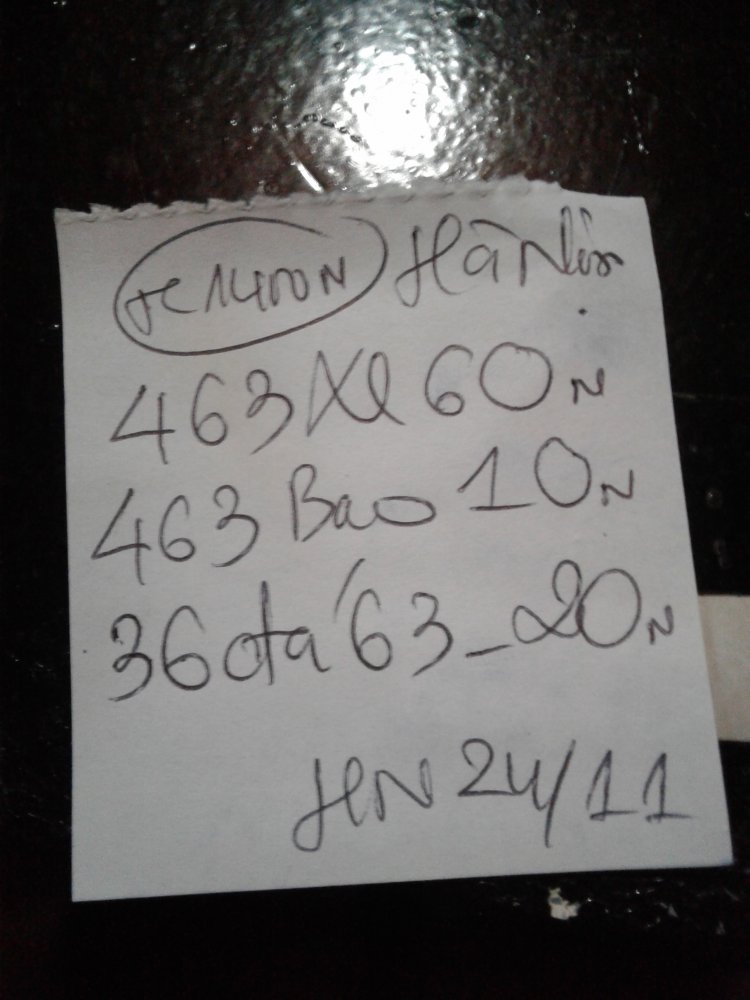 HC 1400N Hà Nội
463 Xl 60N
463 Bao 10N
36 đá 63 - 20N
HN 24/11